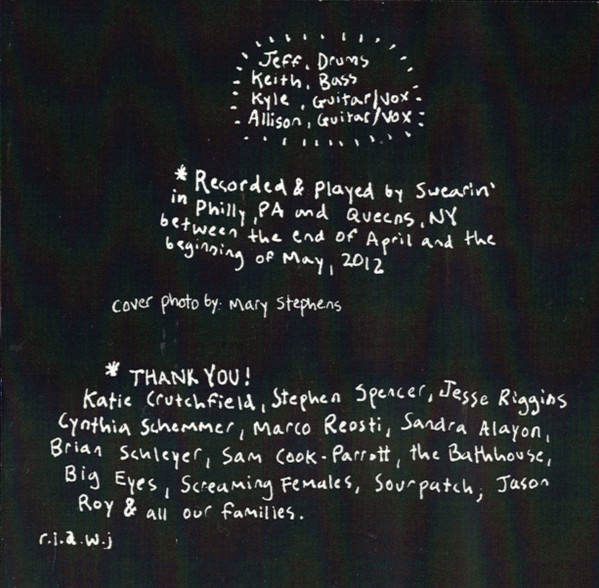 Jeff, Drums
Keith, Bass
Kyle, Guitar/Vox
Allison, Guitar/Vox
* Recorded & Played by Swearin'
in Philly, PA and Queens, NY
between the end of April and the
beginning of May, 2012
cover photo by: Mary Stephens
* THANK YOU!
Katie Crutchfield, Stephen Spencer, Jesse Riggins
Cynthia Schemmer, Marco Reosti, Sandra Alayon,
Brian Schleyer, Sam Cook-Parrott, the Bathhouse,
Big Eyes, Screaming Females, Sourpatch, Jason
Roy & all our families.
r.i.a.w.j